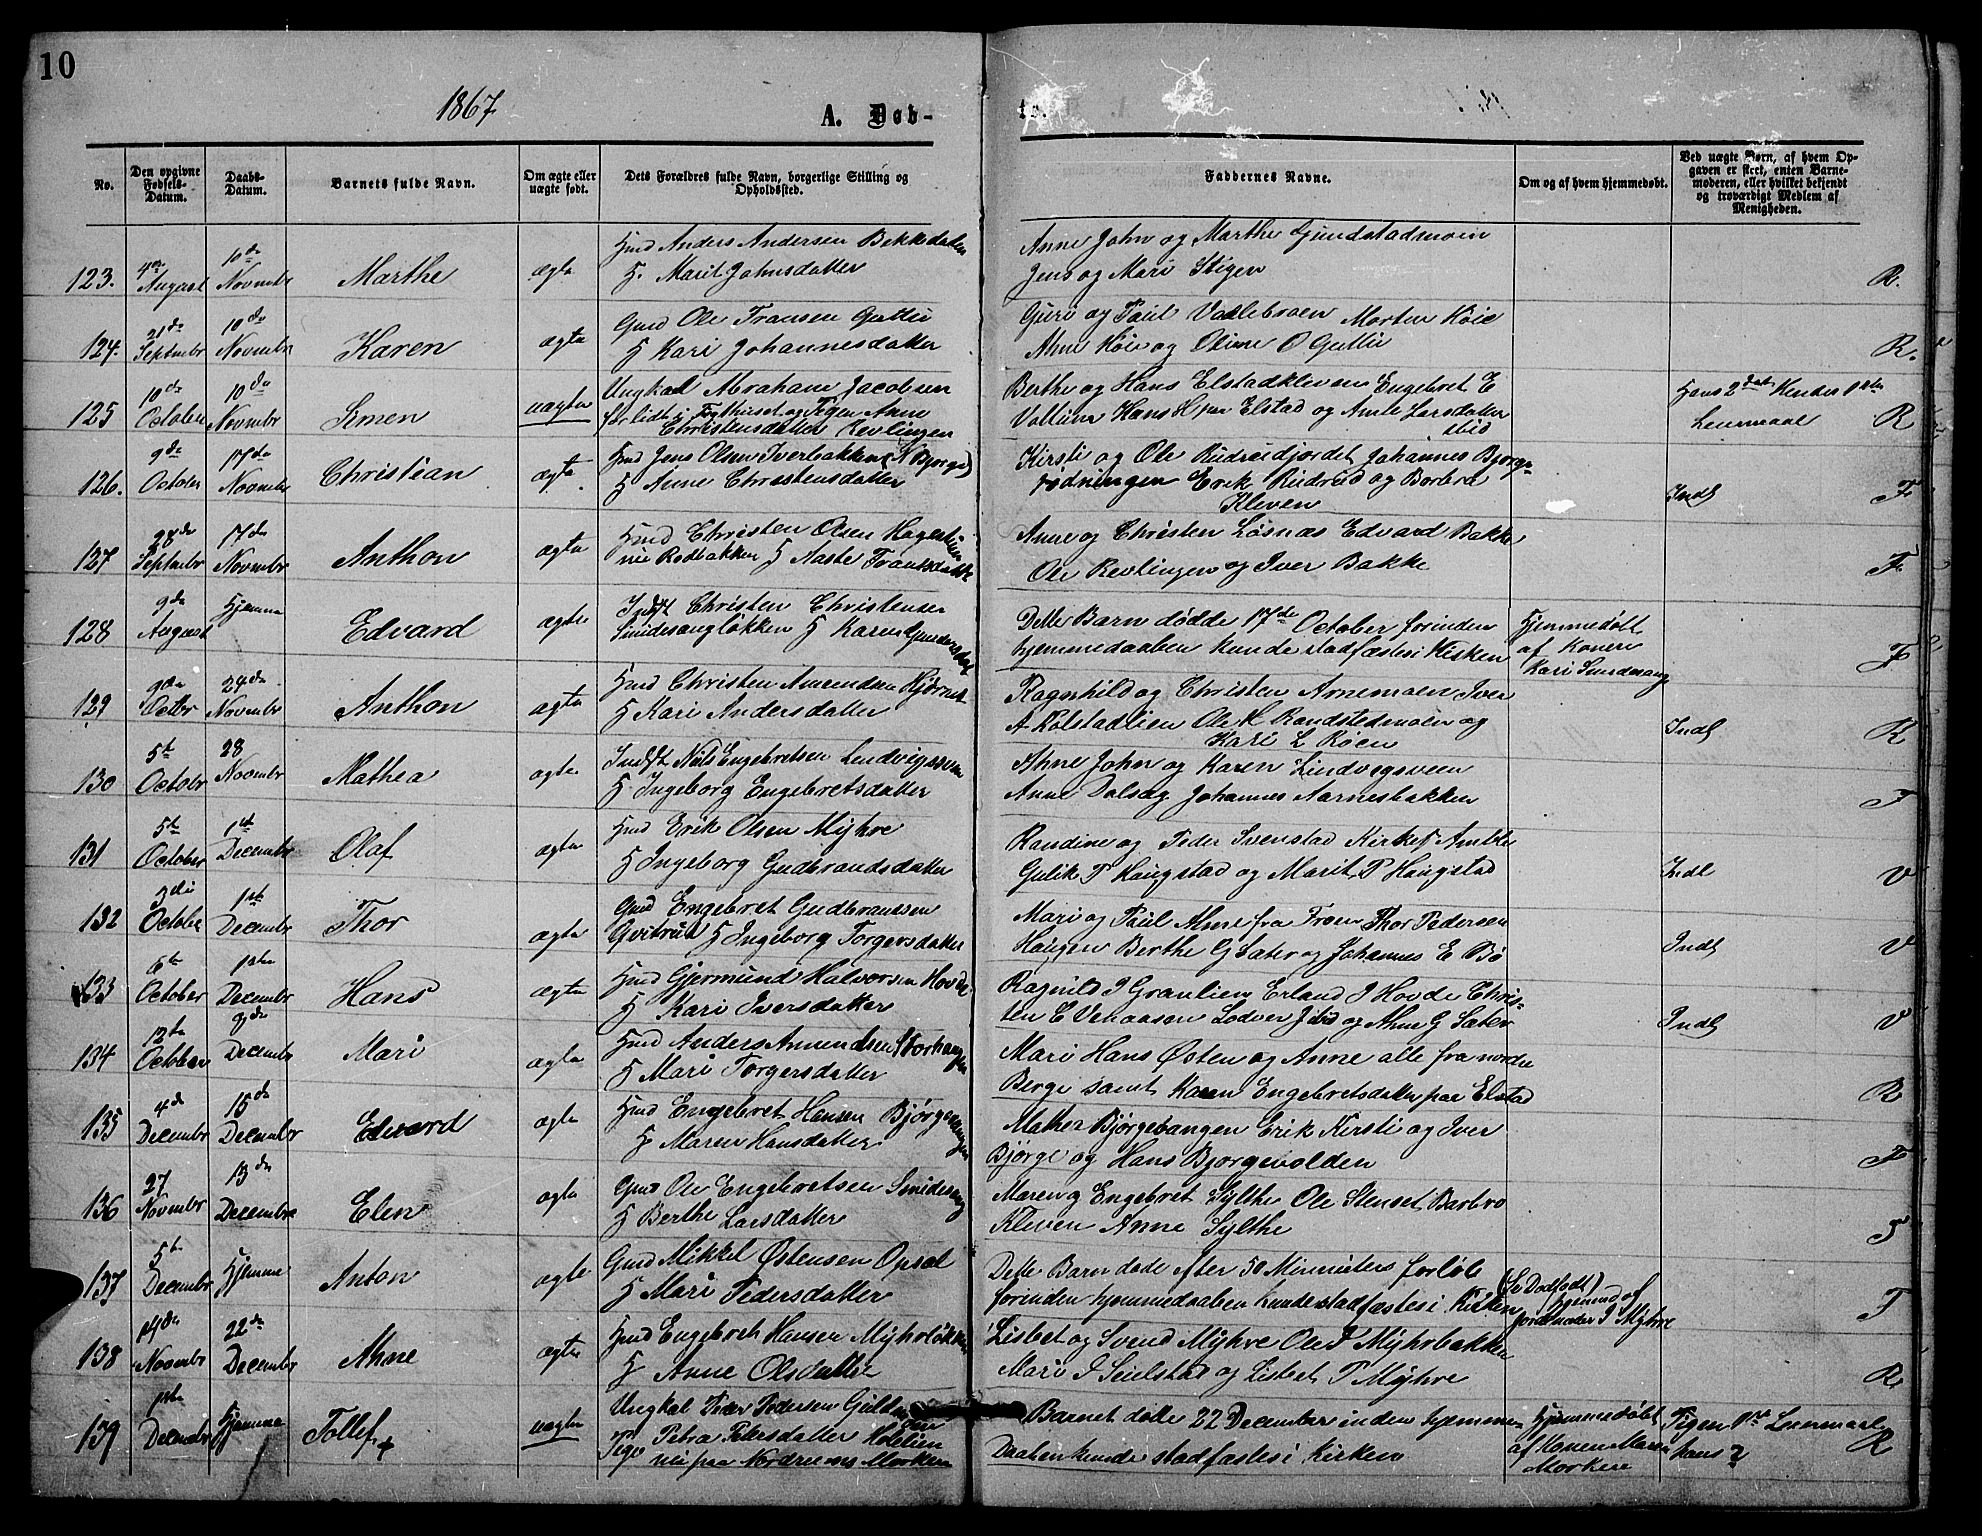 10
1867
A. Døb-
te.
No.
Den opgivne Fødsels-Datum.
Daabs-Datum.
Barnets fulde Navn.
Om ægte eller uægte født.
Dets Forældres fulde Navn, borgerlige Stilling og Opholdssted.
Faddernes Navne.
Om og af hvem hjemmedøbt.
Ved uægte Børn, af hvem Op-
gaven er skeet, enten Barne-
moderen, eller hvilket bekjendt
og troværdigt Medlem af
Menigheden.
123. 4de August 10de Novembr Marthe ægte Hmd Anders Andersen Bekkedalen
H. Marit Johnsdatter
Anne John og Marthe
Jens og Mari Stigen
R.
124. 21de Septembr 10de Novembr Karen ægte Gmd Ole Fransen Guttu
H Kari Johannesdatter
Guri og Paul Morten Høie
Ahne Høie og Oline O Guttu
R.
125 10de October 10de Novembr Semen uægte Ungkarl Abraham Jacobsen
Pigen Anne
Christensdatter Revlingen
Berthe og Hans Elstadkleven Engebret E
Hans H paa Elstad og Larsdatter
ibid
Hans 2det Hendes 1ste
Leiermaal
R
126. 9de October 17de Novembr Christian ægte Hmd Jens Olsen Iverbakken (N Bjørge)
H Anne Christensdatter
Kirsti og Ole Rudrudjordet Johannes Bjørge-
rødningen Erik Rudrud og Borbra
Kleven
Indl
F
127 28de Septembr 17de Novembr Anthon ægte Hmd Christen Olsen
H Frantsdatter
Anne og Christen Løsnæs Edvard Bakke
Ole Revlingen og Iver Bakke
F
128 9de August Hjemme Edvard ægte Indst Christen Christensen
H Karen
Dette Barn dødde 17de October forinden
hjemmedaaben kunde stadfæstes i Kirken
Hjemmedøbt
af Konen
Kari Smidesang
F
129 9de Octbr 24de Novembr Anthon ægte Hmd Christen Amundsen
H Kari Andersdatter
Ragnhild og Christen Arnemoen Iver
A Kolstadlien Ole H Randstedmoen og
Kari L Røen
Indl
R
130 5te Octobr 28 Novembr Mathea ægte Indst Nils Engebretsen Lindvigsveen
H Ingeborg Engebretsdatter
Ahne John og Karen Lindvigsveen
Anne Dalsæg Johannes Aarnesbakken
F
131 5te October 1ste Decembr Olaf ægte Hmd Erik Olsen Myhre
H Ingeborg Gudbrandsdatter
Randine og Peder Svenstad
Gulik P Haugstad og Marit P Haugstad
Indl
V
132 3die October 1ste Decembr Thor ægte Gmd Engebret Gudbrantssen
Qvitrud H Ingeborg Torgersdatter
Mari og Paul Ahne fra Froen Thor Pedersen
Haugen Berthe G Sæter og Johannes E Bø
Indl
V
133 6te October 1ste Decembr Hans ægte Hmd Gjermund Halvorsen Hovde
H Kari Iversdatter
Ragnild J Graulien Erland J Hovde Chris-
ten E Lodver ibid og Ahne G Sæter
Indl
V
134 12te October 8de Decembr Mari ægte Hmd Anders Amundsen Storhaugen
H Mari Torgersdatter
Mari Hans Østen og Anne alle fra nordre
Berge samt Karen Engebretsdatter paa Elstad
R
135 4de Decembr 15de Decembr Edvard ægte Hmd Engebret Hansen
H Maren Hansdatter
Mathea Bjørgebangen Erik Kirsti og Iver
Bjørge og Hans Bjørgevolden
F
136 27 Novembr 13de Decembr Elen ægte Gmd Ole Engebretsen Smidesang
H Berthe Larsdatter
Maren og Engebret Sylthe Ole Stenset Barbro
Kleven Anne Sylthe
F
137 5te Decembr Hjemme Anton ægte Gmd Mikkel Østensen Opsal
H Mari Pedersdatter
Dette Barn døde efter 50 Minutters forløb
forinden hjemmedaaben kunde stadfæstes i Kirken
(Se Dødfødt)
hjemmd af
jordmoder I Myhre
F
138 14de Novembr 22de Decembr Ahne ægte Hmd Engebret Hansen Myhrløkken
H Anne Olsdatter
Lisbet og Svend Myhre Ole P Myhrbakken
Mari J Seielstad og Lisbet P Myhre
R
139 1ste Decembr Hjemme Tollef uægte Ungkal Iver Pedersen
Pige Petra Petersdatter Holelien
nu paa Nordre Morken
Barnet døde 22 December inden hjemme-
Daaben kunde stadfæstes i kirken
Hjemmedøbt
af Konen Maren
Morken
Pigen 1ste Leiermaal
hans 2
R